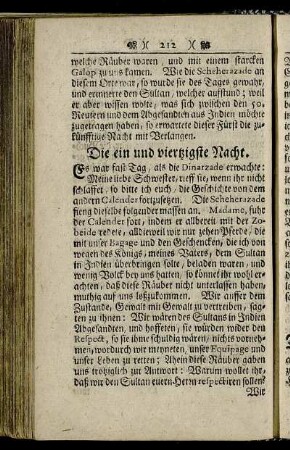 )( 212 )(
welche Räuber waren, und mit einem starcken
Galop zu uns kamen. Wie die Scheherazade an
diesem Orte war, so wurde sie des Tages gewahr,
und erinnerte den Sultan, welcher aufstund; weil
er aber wissen wolte, was sich zwischen den 50.
Reutern und dem Abgesandten aus Indien möchte
zugetragen haben, so erwartete dieser Fürst die zu-
künfftige Nacht mit Verlangen.
Die ein und viertzigste Nacht.
Es war fast Tag, als die Dinarzade erwachte:
Meine liebe Schwester, rieff sie, wenn ihr nicht
schlaffet, so bitte ich euch, die Geschichte von dem
andern Calender fortzusetzen. Die Scheherazade
fieng dieselbe folgender massen an. Madame, fuhr
der Calender fort, indem er allbereit mit der Zo-
beide redete, alldieweil wir nur zehen Pferde, die
mit unser Bagage und den Geschencken, die ich von
wegen des Königs, meines Vaters, dem Sultan
in Indien überbringen solte, beladen waren, und
wenig Volck bey uns hatten, so könnet ihr wohl er-
achten, daß diese Räuber nicht unterlassen haben,
muthig auf uns loßzukommen. Wir ausser dem
Zustande, Gewalt mit Gewalt zu vertreiben, sag-
ten zu ihnen: Wir wären des Sultans in Indien
Abgesandten, und hoffeten, sie würden wider den
Respect, so sie ihme schuldig wären, nichts vorneh-
men, wordurch wir meyneten, unser Equipage und
unser Leben zu retten; Allein diese Räuber gaben
uns trotziglich zur Antwort: Warum wollet ihr,
daß wir den Sultan euern Herrn respectiren sollen?
Wir